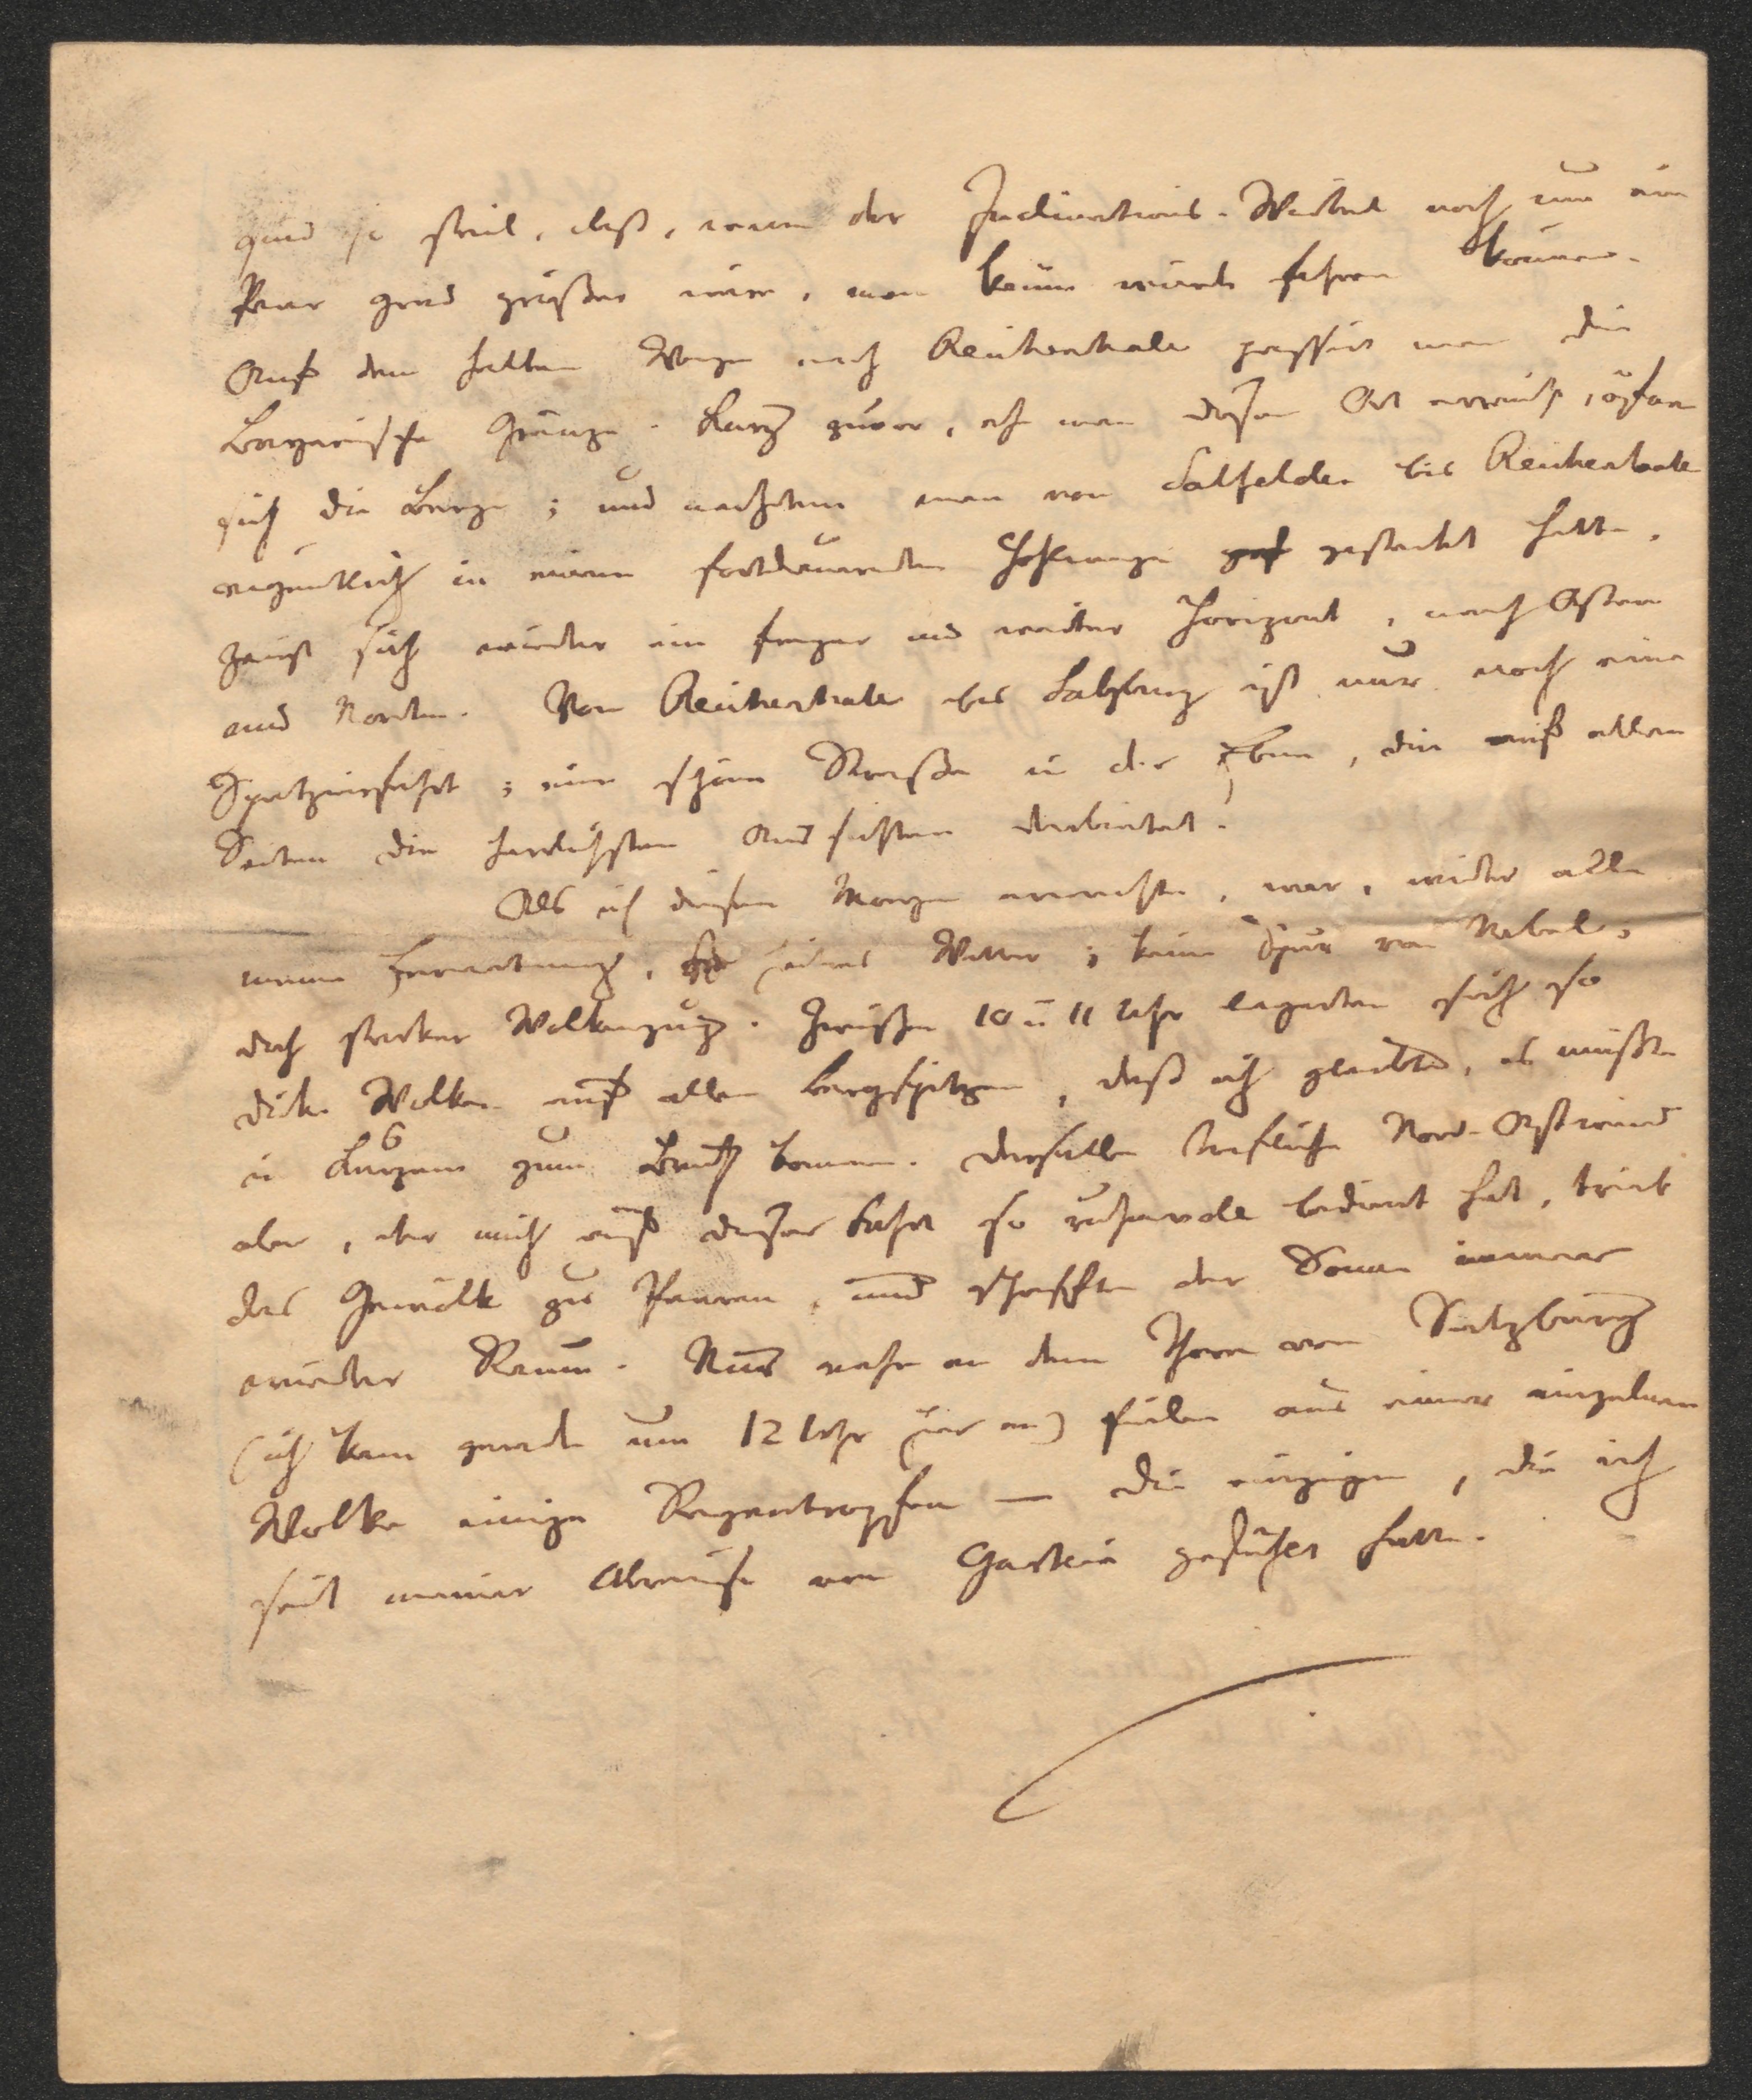 sind so steil, daß, wenn der Inclinations-Winkel noch um ein
Paar Grad größer wäre, man kaum würde fahren können.
Auf dem halben Wege nach Reichenhalle passirt man die
Bayerische Gränze. Kurz zuvor, eh man diesen Ort erreicht, öfnen
sich die Berge; und nachdem man von Salfelden bis Reichenhalle
eigentlich in einem fortdauernden Hohlwege gesteckt hatte,
zeigt sich wieder ein freyer und weiter Horizont, nach Osten
und Norden. Von Reichenhalle bis Salzburg ist nur noch eine
Spatzierfahrt; eine schöne Strasse in der Ebne, die auf allen
Seiten die herrlichsten Aussichten darbietet.
Als ich diesen Morgen erwachte, war, wider alle
meine Erwartung, schönes Wetter; keine Spur von Nebel;
doch starker Wolkenzug. Zwischen 10 u 11 Uhr lagerten sich so
dicke Wolken auf allen Bergspitzen, daß ich glaubte, es müßte
in Kurzem zum Bruch kommen. Derselbe trefliche Nord-Ostwind
aber, der mich auf dieser Fahrt so ruhmvoll bedient hat, trieb
das Gewölk zu Paaren, und schaffte der Sonne immer
wieder Raum. Nur nahe an dem Thore von Salzburg
(ich kam gerade um 12 Uhr hier an) fielen aus einer einzelnen
Wolke einige Regentropfen — die einzigen, die ich
seit meiner Abreise von Gastein gesehen hatte.